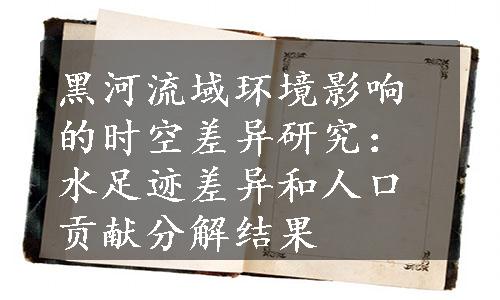 黑河流域环境影响
的时空差异研究：
水足迹差异和人口
贡献分解结果